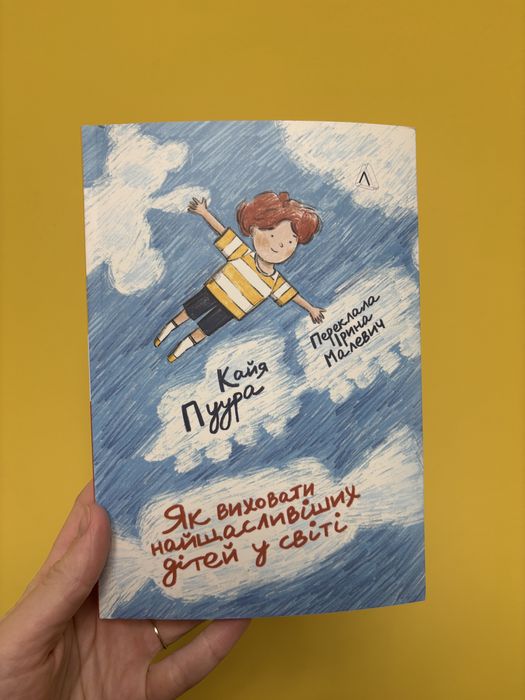 Λ
Переклала
Ірина
Малевич
Кайя
Пуура
Як виховати
найщасливіших
дітей у світі